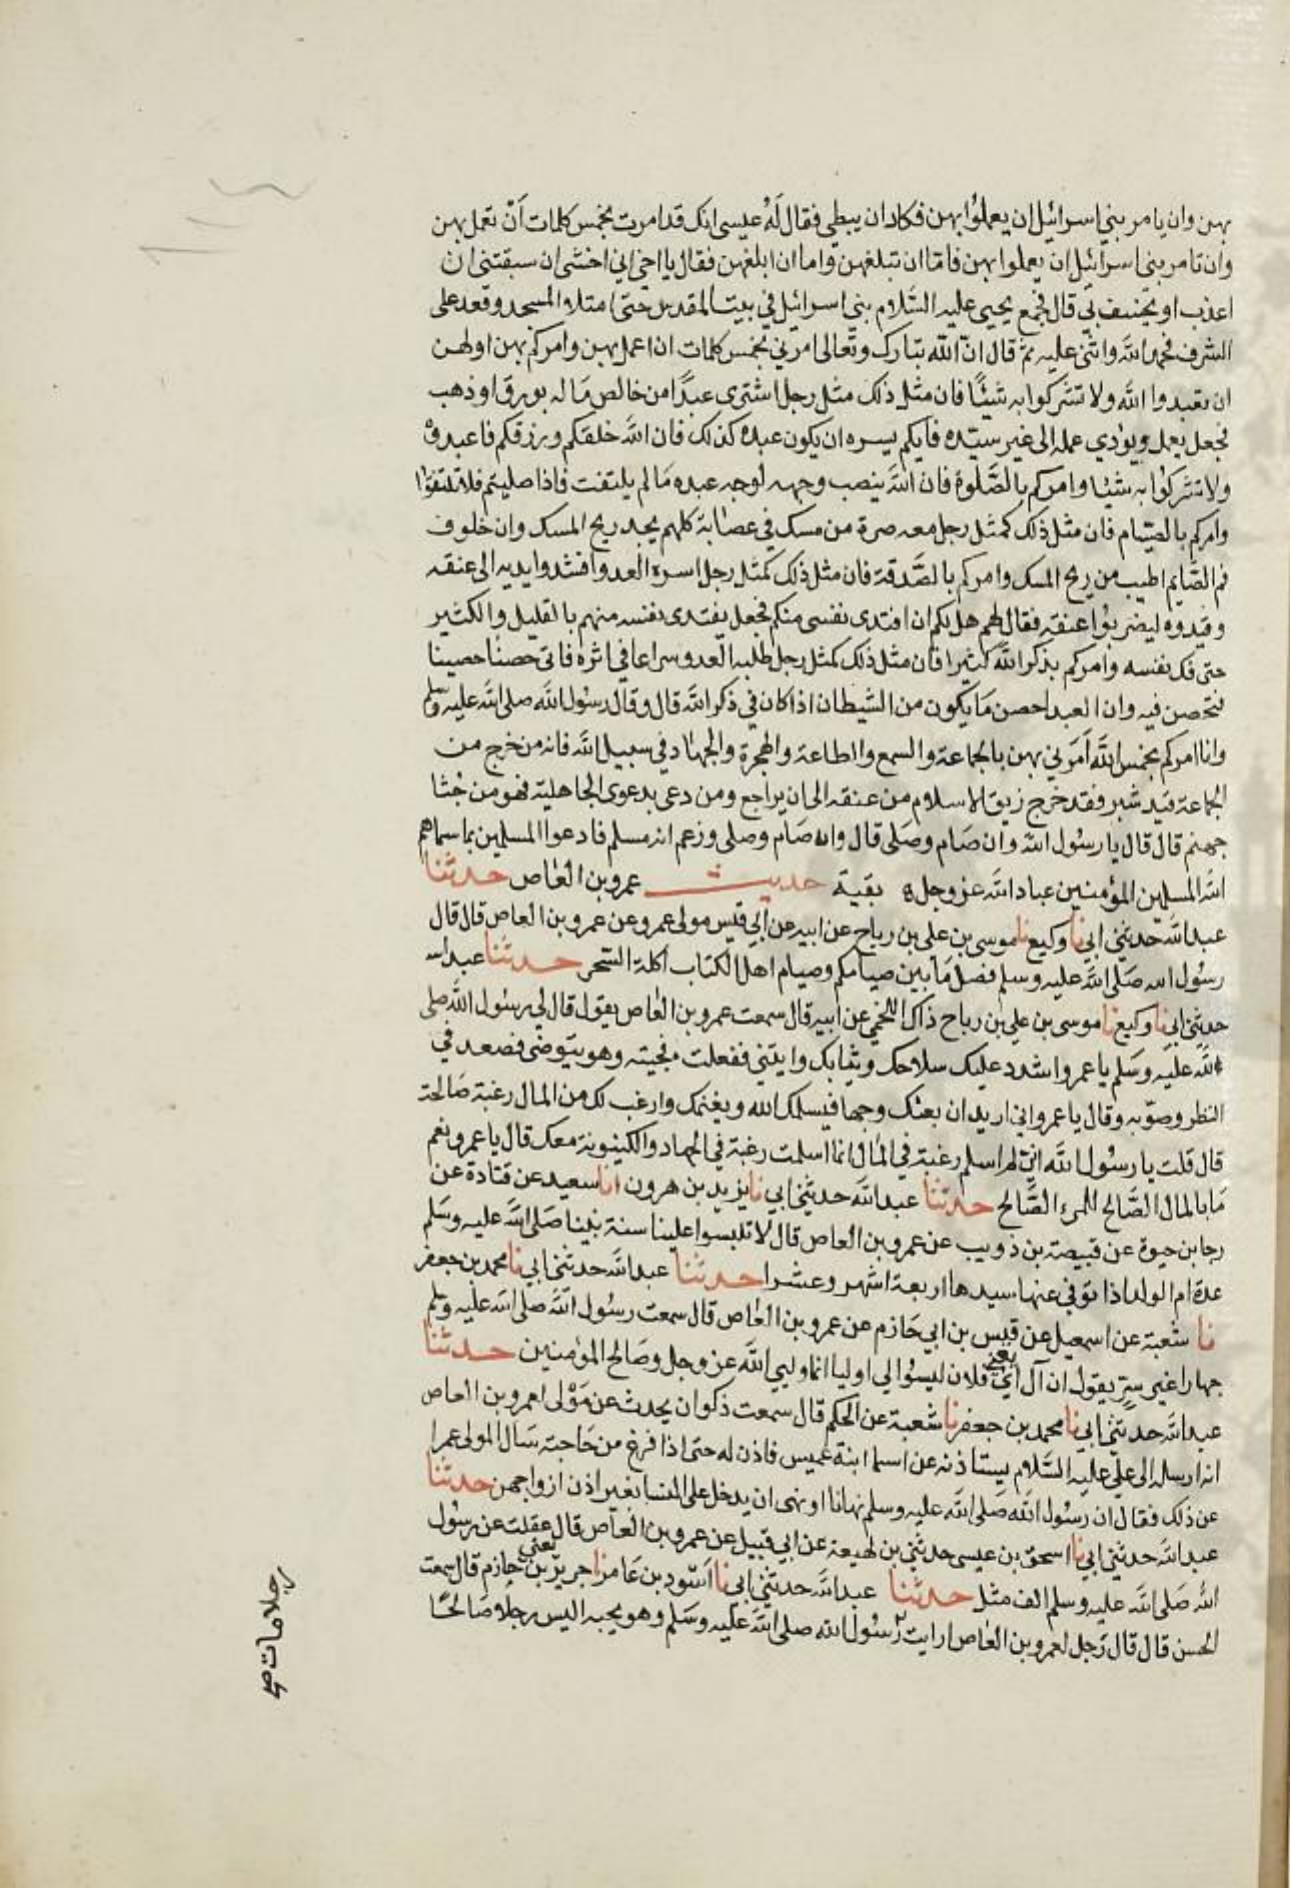 بهن وان يامر بني اسرائيل ان يعملوا بهن فكاد ان يبطي فقال له عيسى انك قد امرت بخمس كلمات أن تعمل بهن
وان تامر بني اسرائيل ان يعملوا بهن فاما ان تبلغهن واما ان ابلغهن فقال يا اخي اني اخشى ان سبقتني ان
اعذب او يخسف بي قال فجمع يحيى عليه السلام بني اسرائيل في بيت المقدس حتى امتلاء المسجد وقعد على
الشرف فحمد الله واثنى عليه ثم قال ان الله تبارك وتعالى امرني بخمس كلمات ان اعمل بهن وامركم بهن اولهن
ان تعبدوا الله ولا تشركوا به شيئًا فان مثل ذلك مثل رجل اشترى عبدًا من خالص ماله بورق او ذهب
فجعل يعمل ويؤدي عمله الى غير سيّده فأيكم يسره ان يكون عبده كذلك فان الله خلقكم ورزقكم فاعبدوه
ولا تشركوا به شيئا وامركم بالصّلوة فان الله ينصب وجهه لوجه عبده ما لم يلتفت فاذا صليتم فلا تلتفتوا
وامركم بالصيام فان مثل ذلك كمثل رجل معه صرة من مسك في عصابة كلهم يجد ريح المسك وان خلوف
فم الصّايم اطيب من ريح المسك وامركم بالصّدقة فان مثل ذلك كمثل رجل اسره العدو افشدوا يديه الى عنقه
وقدوه ليضربوا عنقه فقال لهم هل لكم ان افتدى نفسي منكم فجعل يفتدى نفسه منهم بالقليل والكثير
حتى فك نفسه وامركم بذكر الله كثيرا فان مثل ذلك كمثل رجل طلبه العدو سراعا في اثره فاتى حصنًا حصينا
فتحصن فيه وان العبد احصن ما يكون من الشيطان اذا كان في ذكر الله قال وقال رسول الله صلى الله عليه وسلم
وانا امركم بخمس الله أمرني بهن بالجماعة والسمع والطاعة والهجرة والجهاد في سبيل الله فانه من خرج من
الجماعة قيد شبر فقد خرج ربق الاسلام من عنقه الى ان يراجع ومن دعى بدعوى الجاهلية فهو من جثا
جهنم قال قال يا رسول الله وان صام وصلى قال وان صام وصلى وزعم انه مسلم فادعوا المسلمين بما سماهم
الله المسلمين المؤمنين عباد الله عز وجل ه بقية حديث عمرو بن العاص حدثنا
عبد الله حدثني ابي نا وكيع نا موسى بن علي بن رباح عن ابيه عن ابي قيس مولى عمرو عن عمرو بن العاص قال قال
رسول الله صلى الله عليه وسلم فصل ما بين صيامكم وصيام اهل الكتاب اكلة السّحر حدثنا عبد الله
حدثني ابي نا وكيع نا موسى بن علي بن رباح ذاك اللخمي عن ابيه قال سمعت عمرو بن العاص يقول قال لي رسول الله صلى
الله عليه وسلم يا عمرو اشدد عليك سلاحك وثيابك وايتني ففعلت فجيته وهو يتوضى فصعد في
النظر وصوّبه وقال يا عمرو اني اريد ان بعثك وجها فيسلمك الله ويغنمك وارغب لك من المال رغبة صالحة
قال قلت يا رسول الله اني لم اسلم رغبة في المال انما اسلمت رغبة في الجهاد والكينونة معك قال يا عمرو نعم
ما بالمال الصّالح للمرء الصّالح حدثنا عبد الله حدثني ابي نا يزيد بن هرون انا سعيد عن قتادة عن
رجا بن حيوة عن قبيصة بن ذويب عن عمرو بن العاص قال لا تلبسوا علينا سنة نبينا صلى الله عليه وسلم
عدة ام الولد اذا توفى عنها سيدها اربعة اشهر وعشرا حدثنا عبد الله حدثني ابي نا محمد بن جعفر
نا شعبة عن اسمعيل عن قيس بن ابي حازم عن عمرو بن العاص قال سمعت رسول الله صلى الله عليه وسلم
جهارا غير سرّ يقول ان آل ابي يعني فلان ليسوا لي اوليا انما وليي الله عز وجل وصالح المؤمنين حدثنا
عبد الله حدثني ابي نا محمد بن جعفر نا شعبة عن الحكم قال سمعت ذكوان يحدث عن مولى لعمرو بن العاص
انه ارسله الى علي عليه السّلام يستاذنه عن اسما ابنة عميس فاذن له حتى اذا فرغ من حاجته سال المولى عمرا
عن ذلك فقال ان رسول الله صلى الله عليه وسلم نهانا او نهى ان يدخل على النسا بغير اذن ازواجهن حدثنا
عبد الله حدثني ابي نا اسحق بن عيسى حدثني بن لهيعة عن ابي قبيل عن عمرو بن العاص قال عقلت عن رسول
الله صلى الله عليه وسلم الف مثل حدثنا عبد الله حدثني ابي نا اسود بن عامر نا جرير يعني بن حازم قال سمعت
الحسن قال قال رجل لعمرو بن العاص ارايت رسول الله صلى الله عليه وسلم وهو يحبه اليس رجلا صالحًا
رجلا مات صح